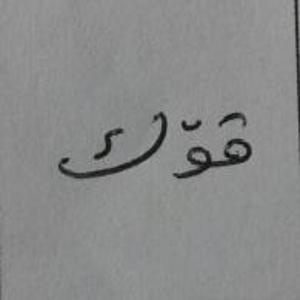 قوّك